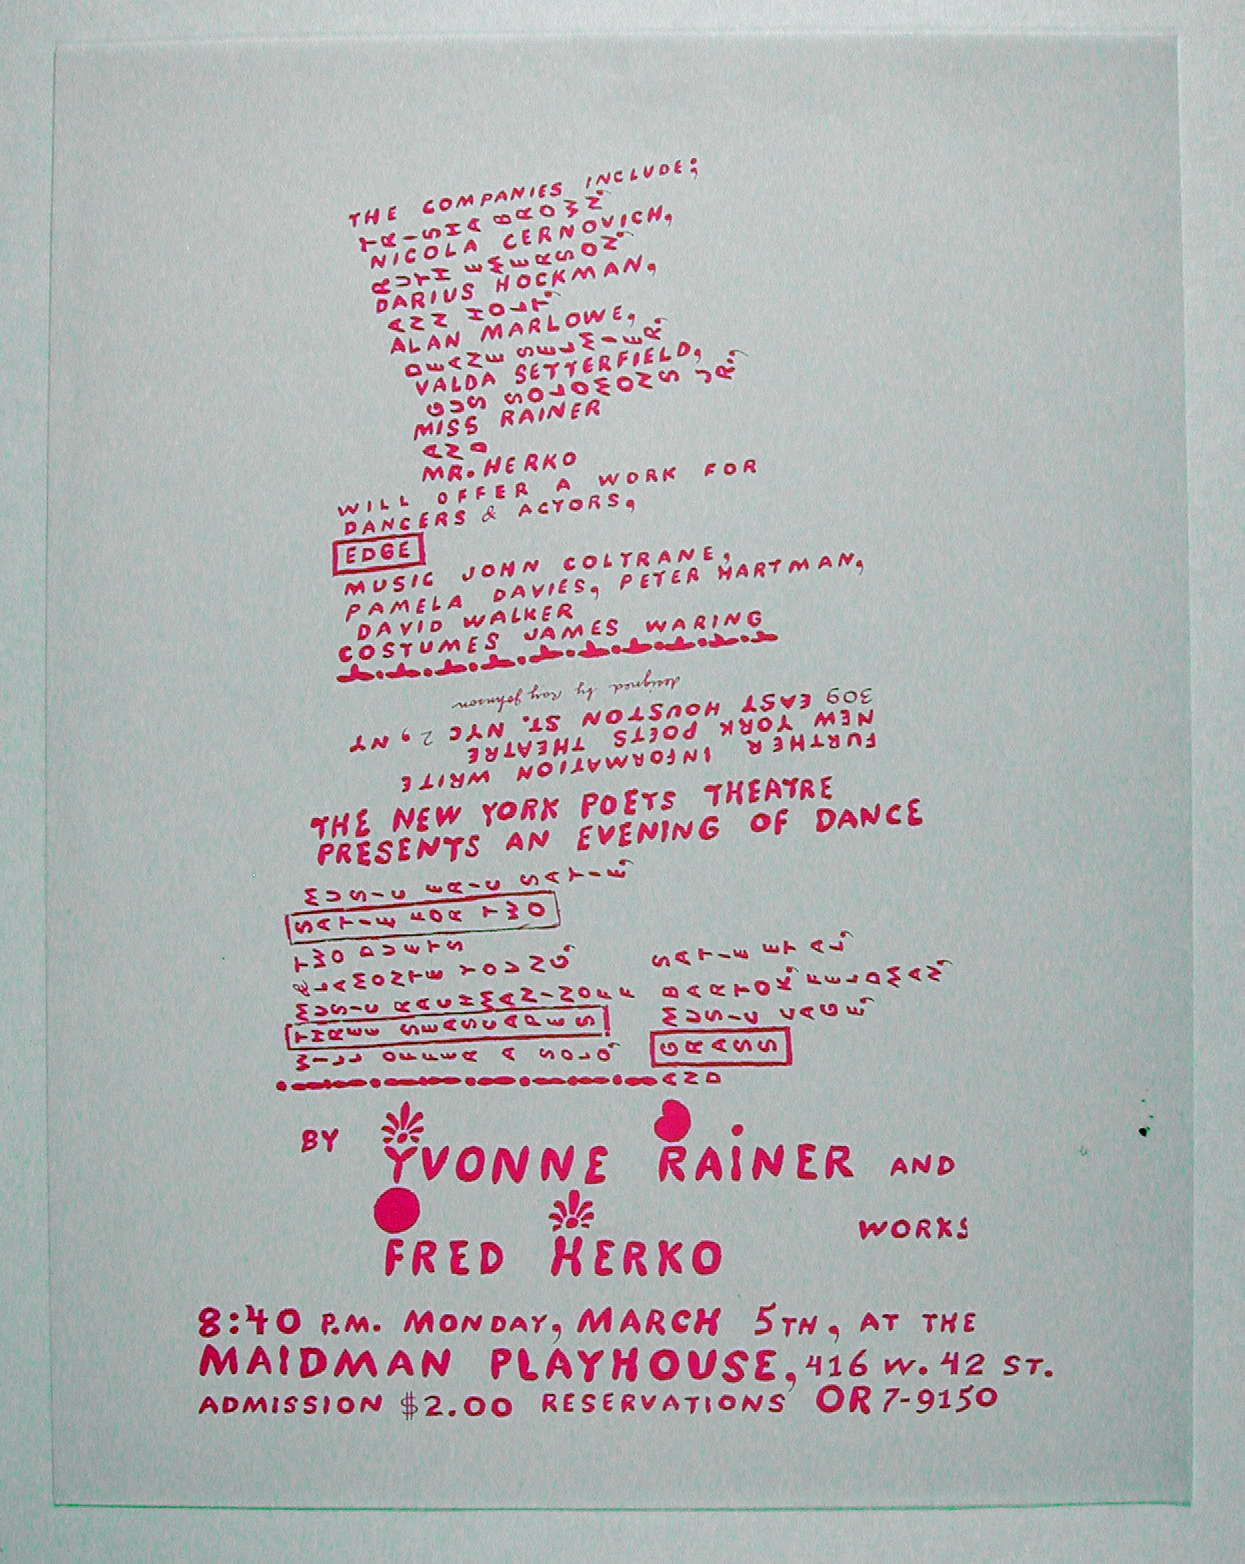 THE COMPANIES INCLUDE;
TRISHA BROWN,
NICOLA CERNOVICH,
RUTH EMERSON,
DARIUS HOCKMAN,
ANN HOLT,
ALAN MARLOWE,
DEANE SELMIER,
VALDA SETTERFIELD,
GUS SOLOMONS JR.,
MISS RAINER
AND
MR. HERKO
WILL OFFER A WORK FOR
DANCERS & ACTORS,
EDGE
MUSIC JOHN COLTRANE,
PAMELA DAVIES, PETER HARTMAN,
DAVID WALKER
COSTUMES JAMES WARING
FURTHER INFORMATION WRITE
NEW YORK POETS THEATRE
309 EAST HOUSTON ST. NYC 2, NY
designed by Ray Johnson
THE NEW YORK POETS THEATRE
PRESENTS AN EVENING OF DANCE
MUSIC ERIC SATIE,
SATIE FOR TWO
TWO DUETS
& LAMONTE YOUNG,
MUSIC RACHMANINOFF
THREE SEASCAPES
WILL OFFER A SOLO,
SATIE ET AL,
BARTOK, FELDMAN,
MUSIC CAGE,
GRASS
AND
BY YVONNE RAINER AND
FRED HERKO WORKS
8:40 P.M. MONDAY, MARCH 5TH, AT THE
MAIDMAN PLAYHOUSE, 416 W. 42 ST.
ADMISSION $2.00 RESERVATIONS OR 7-9150